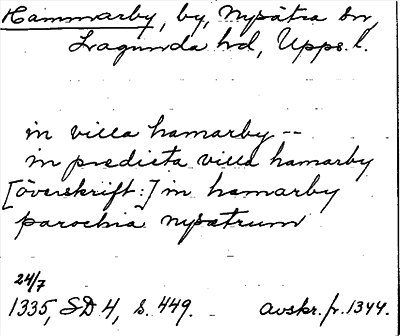 Hammarby, by, Nysätra sn,
Lagunda hd, Upps. l.
in villa hamarby --
in predicta villa hamarby
[överskrift:] in hamarby
parochia nysætrum
24/7
1335, SD 4, s. 449. avskr. fr. 1344.